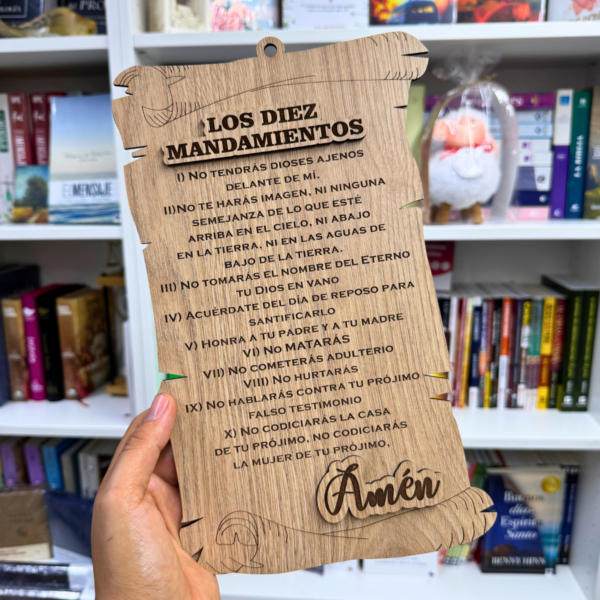 LOS DIEZ
MANDAMIENTOS
I) NO TENDRÁS DIOSES AJENOS
DELANTE DE MÍ.
II)NO TE HARÁS IMAGEN, NI NINGUNA
SEMEJANZA DE LO QUE ESTÉ
ARRIBA EN EL CIELO, NI ABAJO
EN LA TIERRA, NI EN LAS AGUAS DE
BAJO DE LA TIERRA.
III) NO TOMARÁS EL NOMBRE DEL ETERNO
TU DIOS EN VANO
IV) ACUÉRDATE DEL DÍA DE REPOSO PARA
SANTIFICARLO
V) HONRA A TU PADRE Y A TU MADRE
VI) NO MATARÁS
VII) NO COMETERÁS ADULTERIO
VIII) NO HURTARÁS
IX) NO HABLARÁS CONTRA TU PRÓJIMO
FALSO TESTIMONIO
X) NO CODICIARÁS LA CASA
DE TU PRÓJIMO, NO CODICIARÁS
LA MUJER DE TU PRÓJIMO,
Amén
EL MENSAJE
Buenos
días
Espíritu
Santo
BENNY HINN